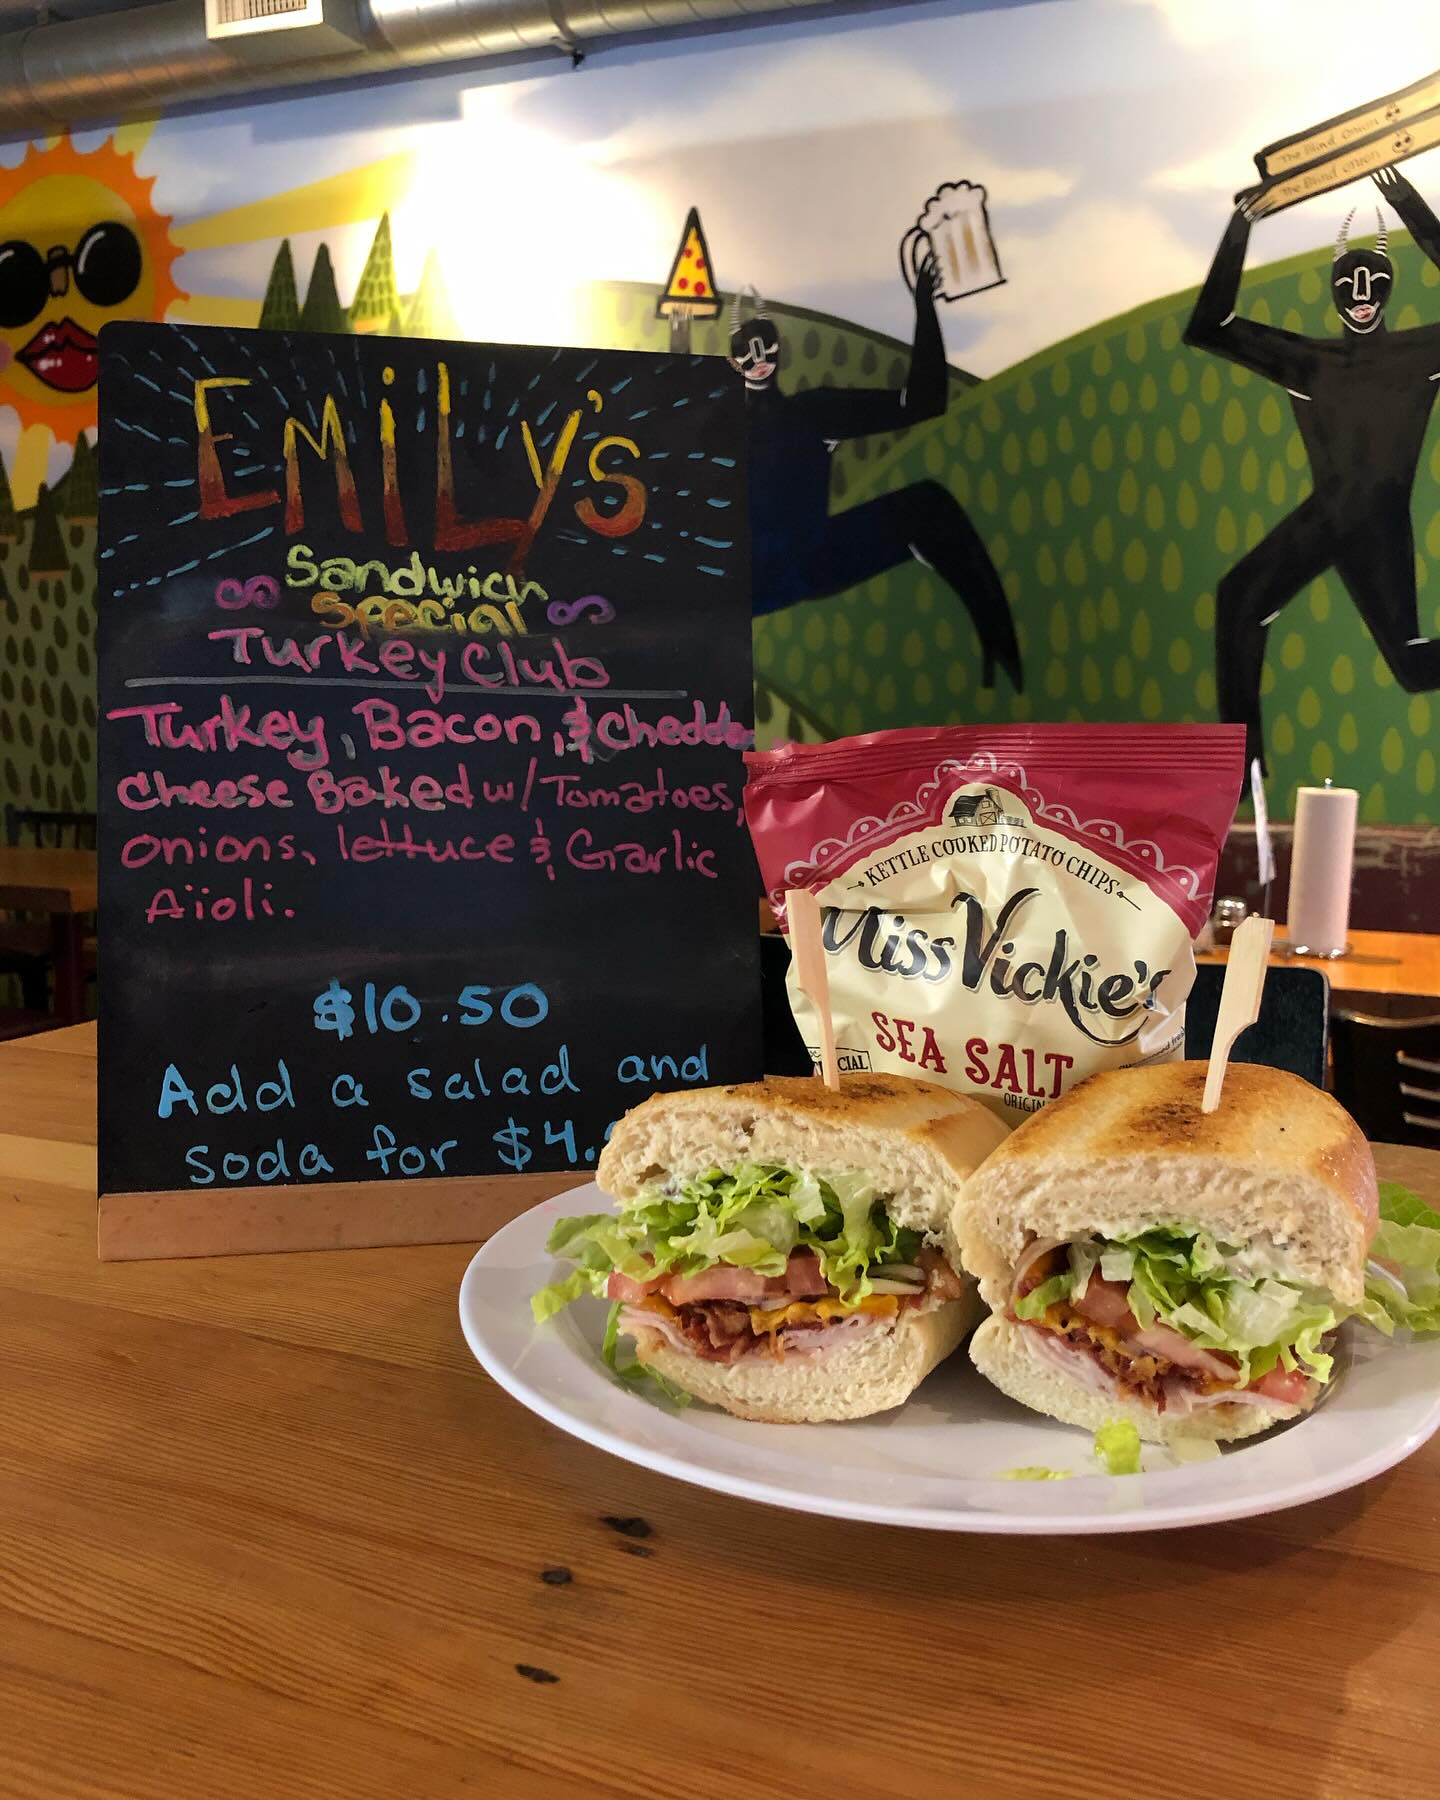 The Blind Onion
The Blind Onion
EMiLy's
Sandwich
Special
Turkey Club
Turkey, Bacon, & chedda
cheese Baked w/ Tomatoes,
onions, lettuce & Garlic
Aïioli.
$10.50
Add a salad and
soda for $4.
KETTLE COOKED POTATO CHIPS
Miss Vickie's
SEA SALT
ORIGIN